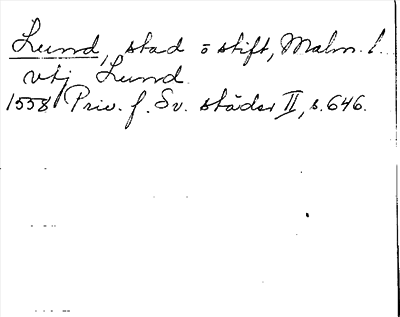 Lund, stad o stift, Malm. l.
utj Lund
1558 Priv. f. Sv. städer II, s. 646.